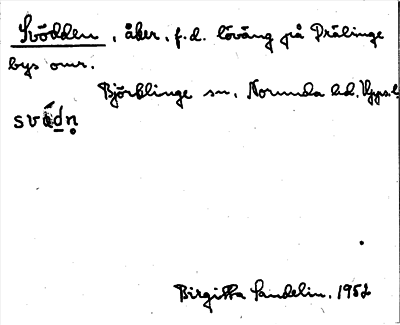 Svödden, åker, f.d. löväng på Drälinge
bys omr.
Björklinge sn. Norunda hd. Upps. l.
svådn̥
Birgitta Sandelin. 1952